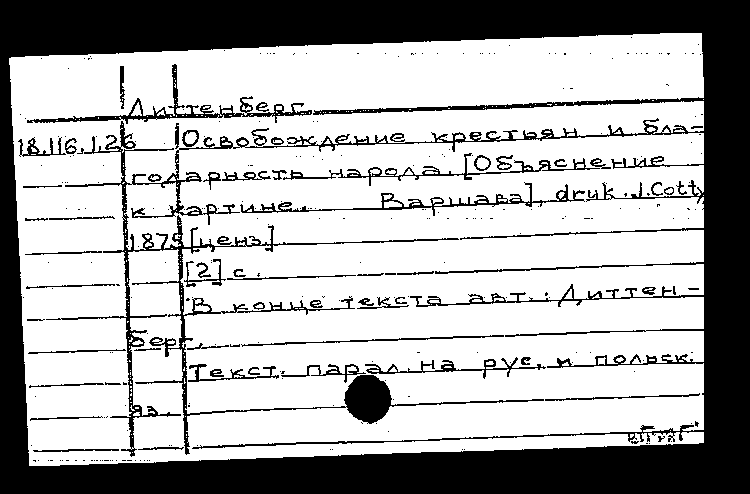 Диттенберг.
18.116.1.26 Освобождение крестьян и бла=
годарность народа. [Объяснение
к картине. Варшава], druk. J. Cotty,
1875 [ценз.]
[2] с.
В конце текста авт.: Диттен-
берг.
Текст. парал. на рус. и польск.
яз.